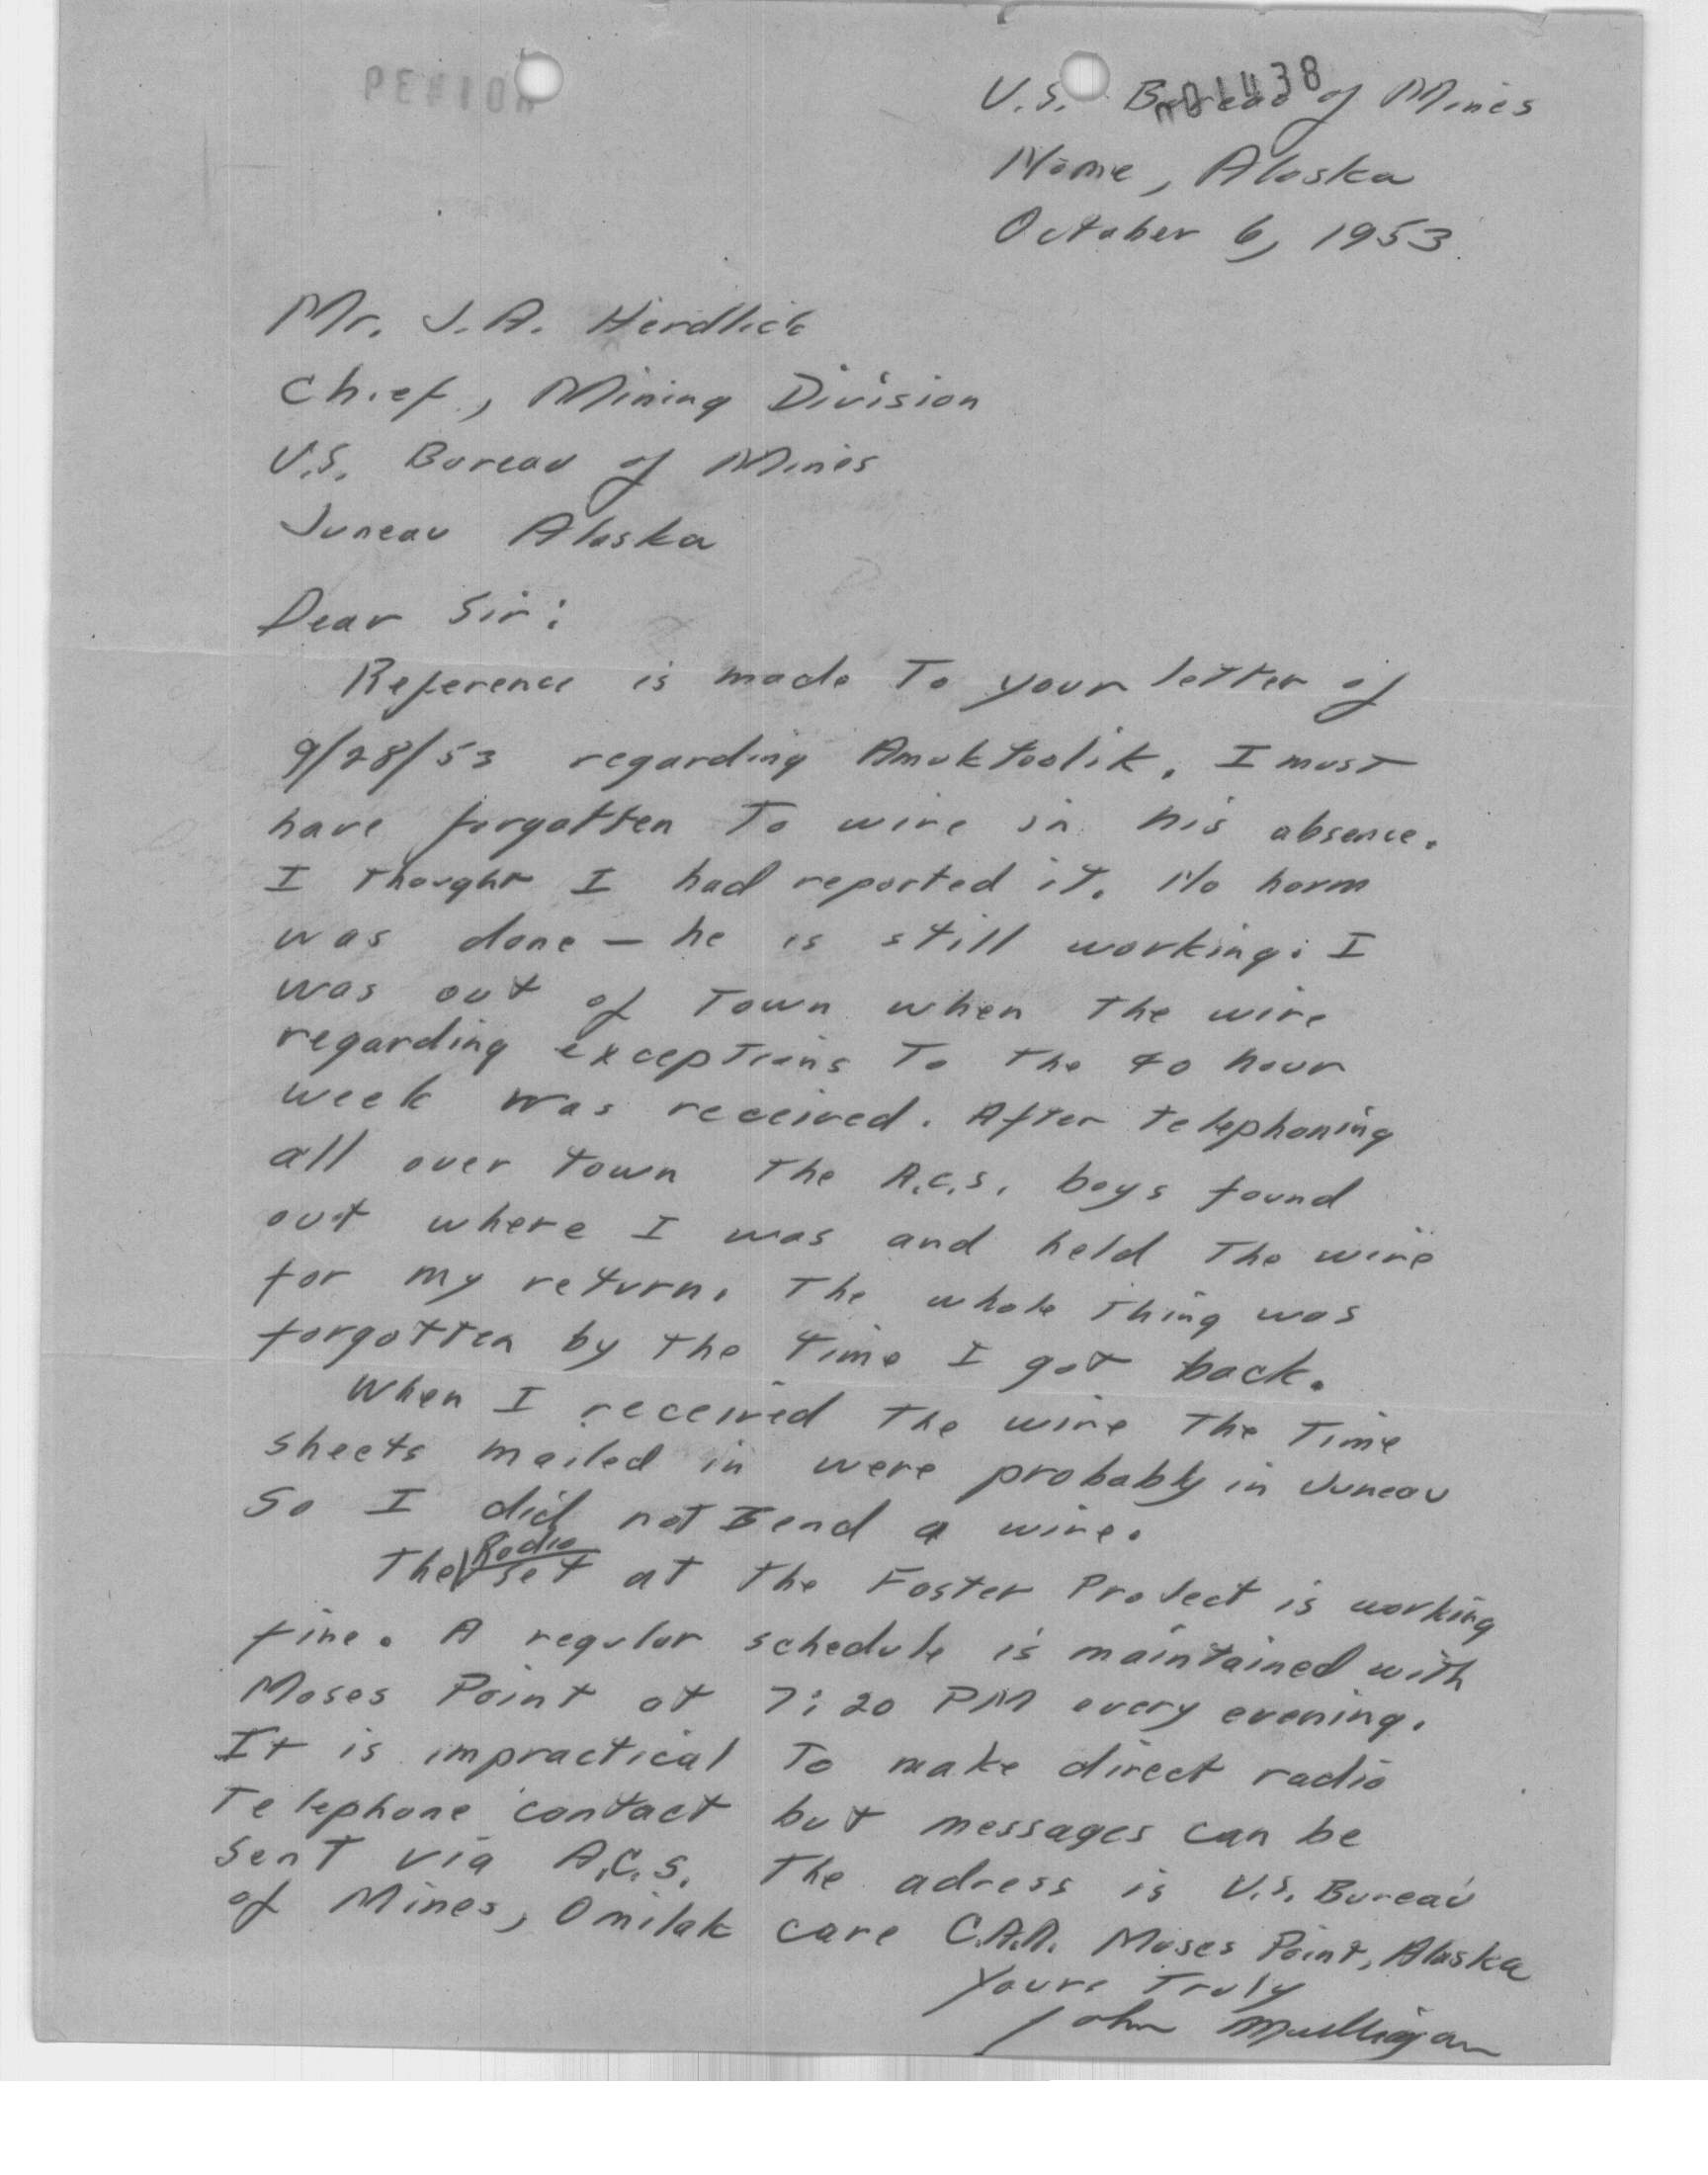 U.S. Bureau of Mines
Nome, Alaska
October 6, 1953
Mr. J.A. Herdlick
Chief, Mining Division
U.S. Bureau of Mines
Juneau Alaska
Dear Sir:
Reference is made to your letter of
9/28/53 regarding Amuktoolik. I must
have forgotten to wire in his absence.
I thought I had reported it. No harm
was done — he is still working. I
was out of town when the wire
regarding exceptions to the 40 hour
week was received. After telephoning
all over town the A.C.S. boys found
out where I was and held the wire
for my return. The whole thing was
forgotten by the time I got back.
When I received the wire the time
sheets mailed in were probably in Juneau
so I did not send a wire.
The Radio set at the Foster Project is working
fine. A regular schedule is maintained with
Moses Point at 7:20 PM every evening.
It is impractical to make direct radio
telephone contact but messages can be
sent via A.C.S. The adress is U.S. Bureau
of Mines, Omilak care C.A.A. Moses Point, Alaska
Yours Truly
John Mulligan